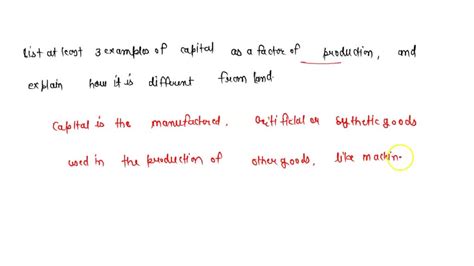 List at least 3 examples of capital as a factor of production, and
explain how it is different from land.
Capital is the manufactured, artificial or sythetic goods
used in the production of other goods, like machin